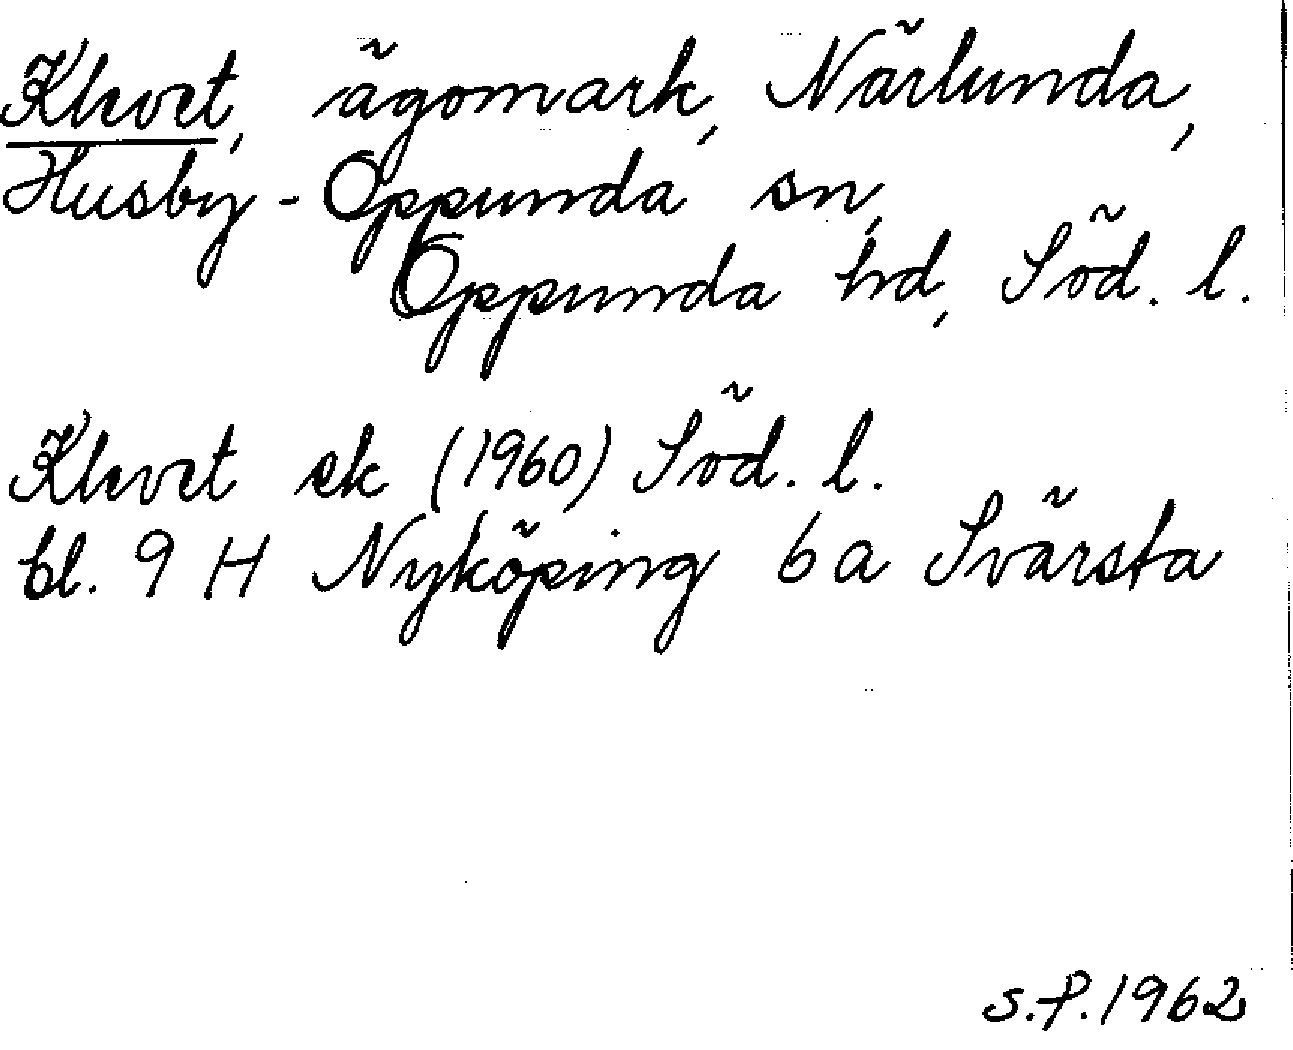 Klevet, ägomark, Närlunda,
Husby-Oppunda sn,
Oppunda hd, Söd. l.
Klevet ek (1960) Söd. l.
bl. 9 H Nyköping 6 a Svärsta
S.P. 1962